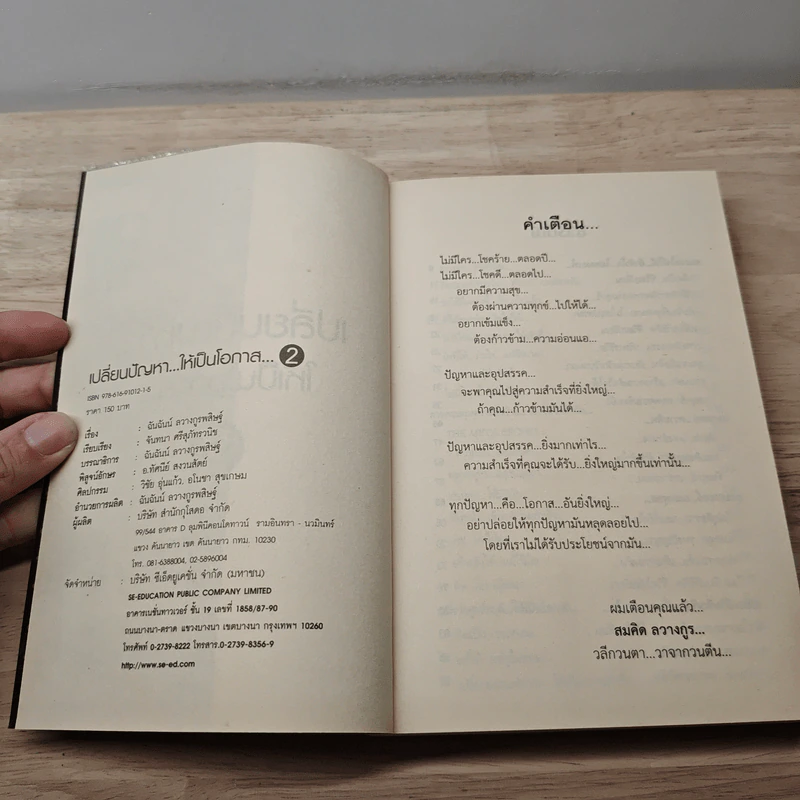 เปลี่ยนปัญหา...ให้เป็นโอกาส... 2
ISBN 978-616-91012-1-5
ราคา 150 บาท
เรื่อง : ฉันฉันน์ ลวางกูรพสิษฐ์
เรียบเรียง : จันทนา ศรีสุภัทรวนิช
บรรณาธิการ : ฉันฉันน์ ลวางกูรพสิษฐ์
พิสูจน์อักษร : อ.ทัศนีย์ สงวนสัตย์
ศิลปกรรม : วิชัย อุ่นแก้ว, อโนชา สุขเกษม
อำนวยการผลิต : ฉันฉันน์ ลวางกูรพสิษฐ์
ผู้ผลิต : บริษัท สำนักกุโสดอ จำกัด
99/544 อาคาร D ลุมพินีคอนโดทาวน์ รามอินทรา - นวมินทร์
แขวง คันนายาว เขต คันนายาว กทม. 10230
โทร. 081-6388004, 02-5896004
จัดจำหน่าย : บริษัท ซีเอ็ดยูเคชั่น จำกัด (มหาชน)
SE-EDUCATION PUBLIC COMPANY LIMITED
อาคารเนชั่นทาวเวอร์ ชั้น 19 เลขที่ 1858/87-90
ถนนบางนา-ตราด แขวงบางนา เขตบางนา กรุงเทพฯ 10260
โทรศัพท์ 0-2739-8222 โทรสาร.0-2739-8356-9
http://www.se-ed.com
คำเตือน...
ไม่มีใคร...โชคร้าย...ตลอดปี...
ไม่มีใคร...โชคดี...ตลอดไป...
อยากมีความสุข...
ต้องผ่านความทุกข์...ไปให้ได้...
อยากเข้มแข็ง...
ต้องก้าวข้าม...ความอ่อนแอ...
ปัญหาและอุปสรรค...
จะพาคุณไปสู่ความสำเร็จที่ยิ่งใหญ่...
ถ้าคุณ...ก้าวข้ามมันได้...
ปัญหาและอุปสรรค...ยิ่งมากเท่าไร...
ความสำเร็จที่คุณจะได้รับ...ยิ่งใหญ่มากขึ้นเท่านั้น...
ทุกปัญหา...คือ...โอกาส...อันยิ่งใหญ่...
อย่าปล่อยให้ทุกปัญหามันหลุดลอยไป...
โดยที่เราไม่ได้รับประโยชน์จากมัน...
ผมเตือนคุณแล้ว...
สมคิด ลวางกูร...
วลีกวนตา...วาจากวนตีน...